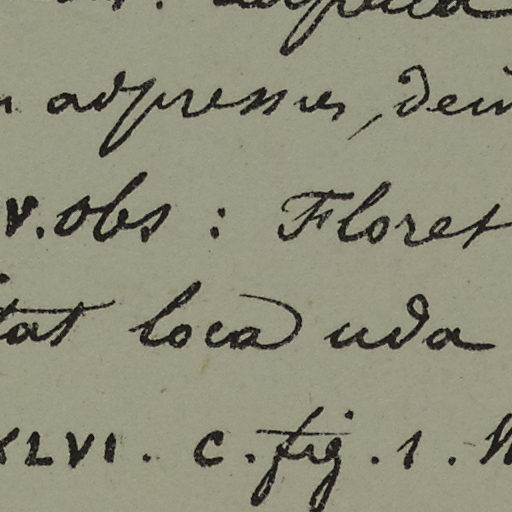 adpressus, dein
v. obs : Floret
tat loca uda
XLVI. C. fig. 1.